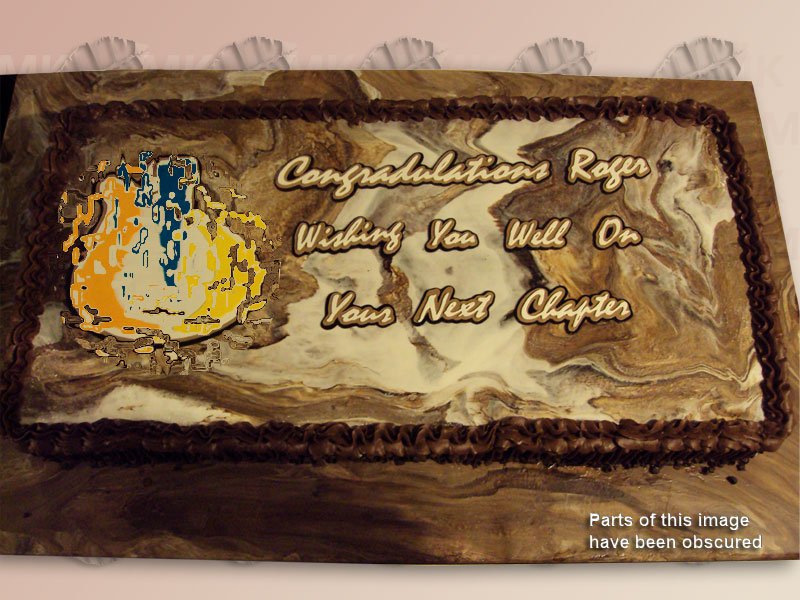 Congradulations Roger
Wishing You Well On
Your Next Chapter
Parts of this image
have been obscured